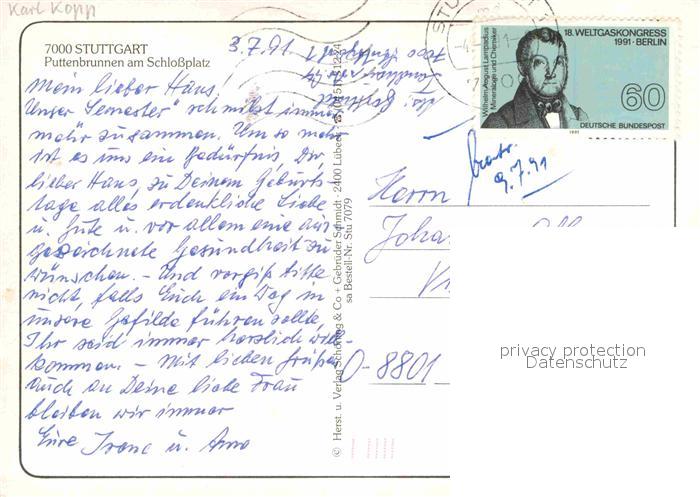 Karl Kopp
7000 STUTTGART
Puttenbrunnen am Schloßplatz
3.7.91
Mein lieber Hans,
Unser "Semester" schmilzt immer
mehr zusammen. Um so mehr
ist es uns ein Bedürfnis, Dir,
lieber Hans, zu Deinem Geburts
tage alles erdenkliche Liebe
u. Gute u. vor allem eine aus
gezeichnete Gesundheit zu
wünschen. - Und vergiß bitte
nicht, falls Euch ein Weg in
unsere Gefilde führen sollte,
Ihr seid immer herzlich will-
kommen. - Mit lieben Grüßen
auch an Deine liebe Frau
bleiben wir immer
Eure Irene u. Arno
© Herst. u. Verlag Schöning & Co + Gebrüder Schmidt · 2400 Lübeck
sa Bestell-Nr. Stu 7079
18. WELTGASKONGRESS
1991 · BERLIN
Wilhelm August Lampadius
Mineraloge und Chemiker
60
DEUTSCHE BUNDESPOST
1991
9.7.91
Herrn
Joha
O-8801
privacy protection
Datenschutz